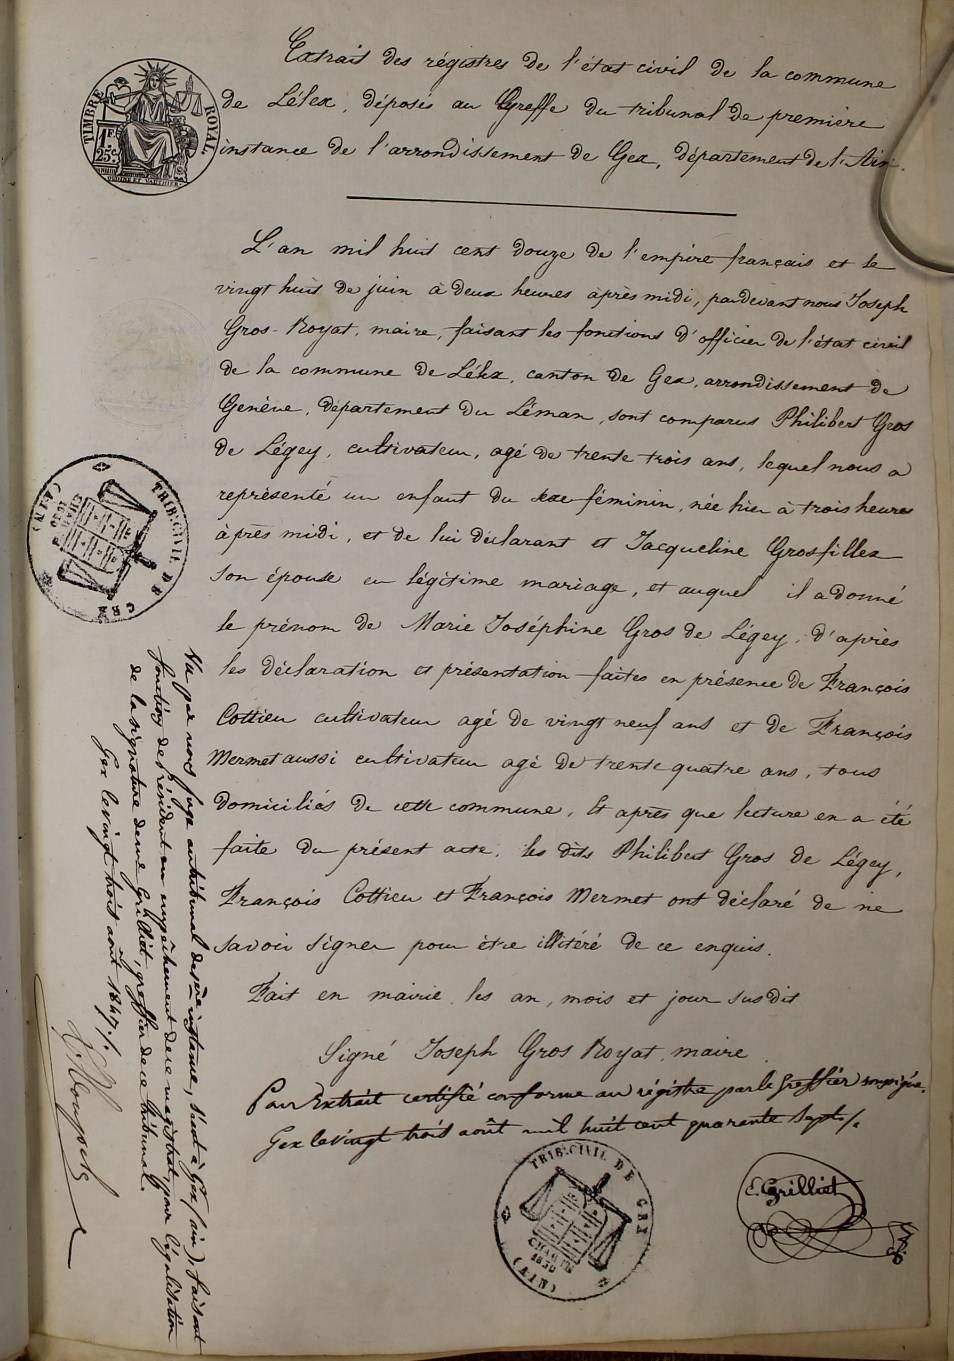 Extrait des régistres de l'état civil de la commune
de Lélex, déposés au Greffe du tribunal de première
instance de l'arrondissement de Gex, département de l'Ain.
TIMBRE ROYAL
1 F. 25 c.
L'an mil huit cent douze de l'empire français et le
vingt huit de juin à deux heures après midi, pardevant nous Joseph
Gros-Royat, maire, faisant les fonctions d'officier de l'état civil
de la commune de Lélex, canton de Gex, arrondissement de
Genève, département du Léman, sont comparus Philibert Gros
de Légey, cultivateur, agé de trente trois ans, lequel nous a
représenté un enfant du sexe féminin, née hier à trois heures
après midi, et de lui déclarant et Jacqueline Grosfillex
son épouse en légitime mariage, et auquel il a donné
le prénom de Marie Joséphine Gros de Légey, d'après
les déclaration et présentation faites en présence de François
Cottieu cultivateur agé de vingt neuf ans et de François
Mermet aussi cultivateur agé de trente quatre ans, tous
domiciliés de cette commune, Et après que lecture en a été
faite du présent acte, les dits Philibert Gros de Légey,
François Cottieu et François Mermet ont déclaré de ne
savoir signer pour être illitéré de ce enquis.
Fait en mairie, les an, mois et jour susdit
Signé Joseph Gros Royat, maire.
Pour Extrait certifié conforme au régistre par le Greffier soussigné.
Gex le vingt trois août mil huit cent quarante sept./.
E. Grilliet
TRIB. CIVIL DE GEX
CHARTE 1830
(AIN)
TRIB. CIVIL DE GEX
CHARTE 1830
(AIN)
Vu par nous Juge au tribunal de 1ère instance, séant à Gex (ain), faisant
fonctions de Président en empêchement de ce magistrat, pour légalisation
de la signature de Me Grilliet, greffier de ce tribunal.
Gex le vingt trois août 1847./.